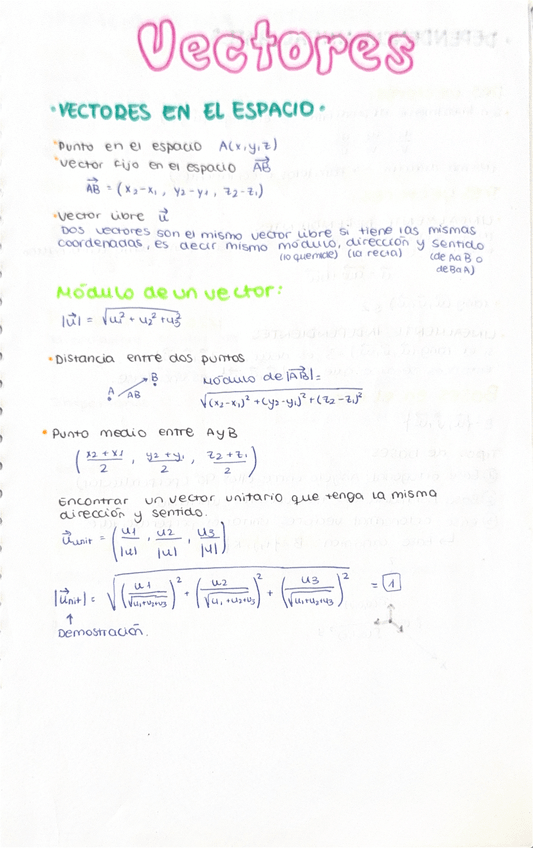 Vectores
• VECTORES EN EL ESPACIO •
• Punto en el espacio A(x,y,z)
• Vector fijo en el espacio AB⃗
AB⃗ = (x₂-x₁ , y₂-y₁ , z₂-z₁)
• Vector libre u⃗
Dos vectores son el mismo vector libre si tiene las mismas
coordenadas, es decir mismo módulo, dirección y sentido
(lo que mide) (la recta) (de A a B o
de B a A)
Módulo de un vector:
|u⃗| = √(u₁² + u₂² + u₃²)
• Distancia entre dos puntos
A B AB
Módulo de |AB⃗| =
√((x₂-x₁)² + (y₂-y₁)² + (z₂-z₁)²)
• Punto medio entre A y B
(x₂+x₁/2 , y₂+y₁/2 , z₂+z₁/2)
Encontrar un vector unitario que tenga la misma
dirección y sentido.
u⃗unit = (u1/|u| , u2/|u| , u3/|u|)
|u⃗nit| = √((u1/√(u₁+u₂+u₃))² + (u2/√(u₁+u₂+u₃))² + (u3/√(u₁+u₂+u₃))²) = 1
↑
Demostración.